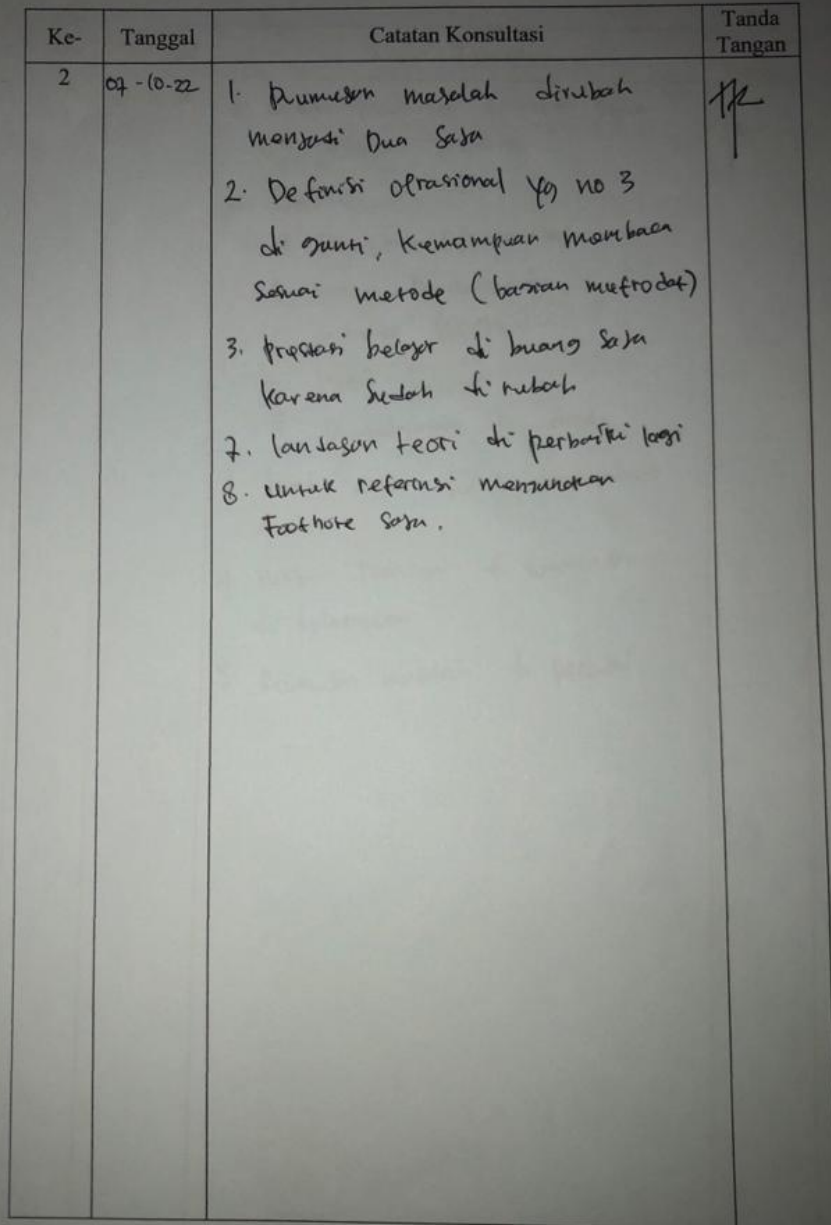 Ke- Tanggal Catatan Konsultasi Tanda Tangan
2 07-10-22 1. Rumusan masalah dirubah
menjadi Dua Saja
2. Definisi oprasional yg no 3
di ganti, Kemampuan membaca
Sesuai metode (bagian mufrodat)
3. prestasi belajar di buang Saja
Karena Sudah di rubah
7. landasan teori di perbaiki lagi
8. untuk referensi menggunakan
Footnote Saja.